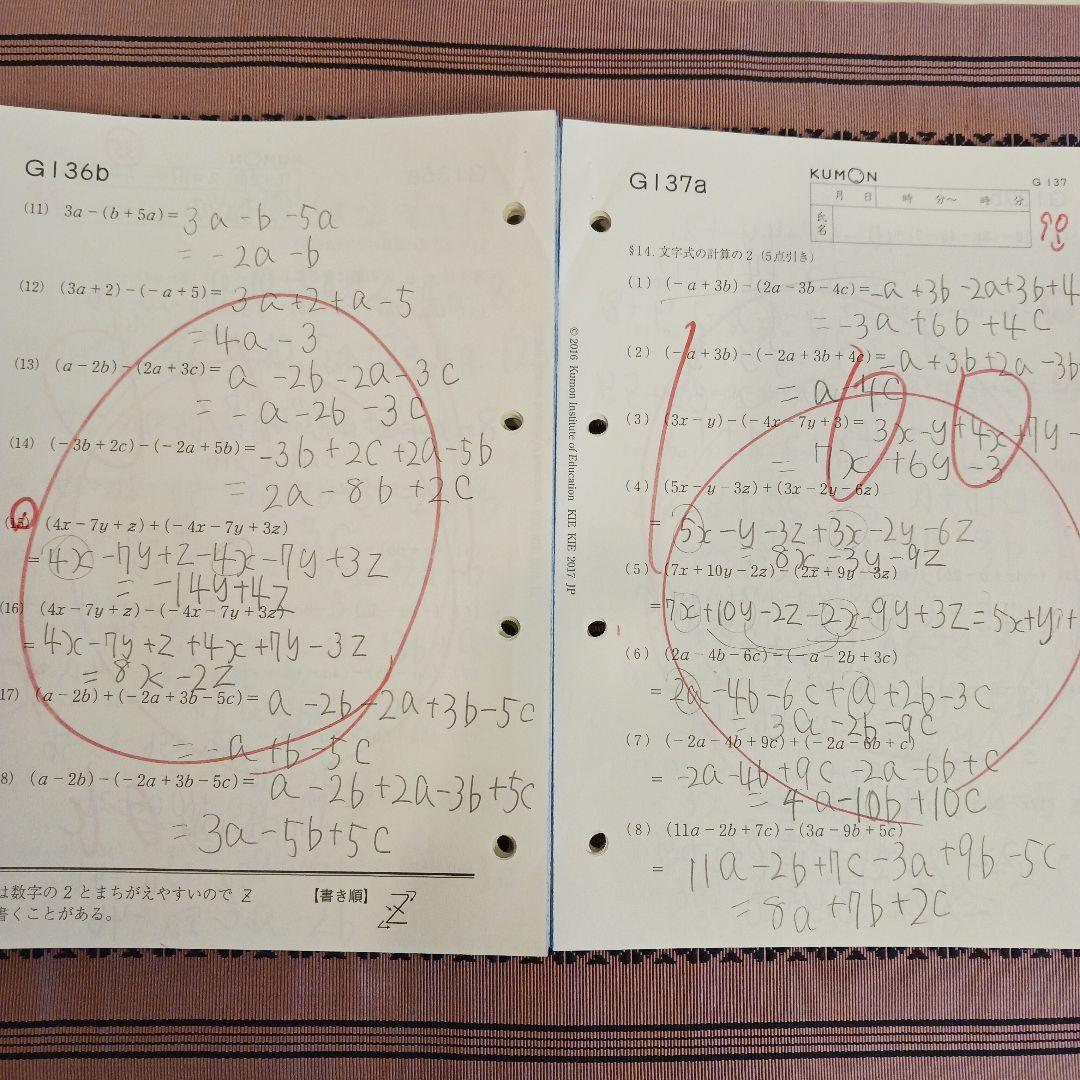 G136b
(11) 3a-(b+5a)= 3a-b-5a
= -2a-b
(12) (3a+2)-(-a+5)= 3a+2+a-5
=4a-3
(13) (a-2b)-(2a+3c)= a-2b-2a-3c
= -a-2b-3c
(14) (-3b+2c)-(-2a+5b)= -3b+2c+2a-5b
= 2a-8b+2c
(15) (4x-7y+z)+(-4x-7y+3z)
= 4x-7y+z-4x-7y+3z
= -14y+4z
(16) (4x-7y+z)-(-4x-7y+3z)
= 4x-7y+z+4x+7y-3z
= 8x-2z
17) (a-2b)+(-2a+3b-5c)= a-2b-2a+3b-5c
= -a+b-5c
8) (a-2b)-(-2a+3b-5c)= a-2b+2a-3b+5c
= 3a-5b+5c
は数字の2とまちがえやすいので Z
書くことがある。
【書き順】 Z
© 2016 Kumon Institute of Education KIE KIE 2017 JP
G137a
KUMON
G 137
月 日 時 分～ 時 分
氏名
90
§14. 文字式の計算の2 (5点引き)
100
(1) (-a+3b)-(2a-3b-4c)= -a+3b-2a+3b+4
= -3a+6b+4c
(2) (-a+3b)-(-2a+3b+4c)= -a+3b+2a-3b
= a-4c
(3) (3x-y)-(-4x-7y+3)= 3x-y+4x+7y-
= 7x+6y-3
(4) (5x-y-3z)+(3x-2y-6z)
= 5x-y-3z+3x-2y-6z
= 8x-3y-9z
(5) (7x+10y-2z)-(2x+9y-3z)
= 7x+10y-2z-2x-9y+3z=5x+y+
(6) (2a-4b-6c)-(-a-2b+3c)
= 2a-4b-6c+a+2b-3c
= 3a-2b-9c
(7) (-2a-4b+9c)+(-2a-6b+c)
= -2a-4b+9c-2a-6b+c
= 4a-10b+10c
(8) (11a-2b+7c)-(3a-9b+5c)
= 11a-2b+7c-3a+9b-5c
= 8a+7b+2c